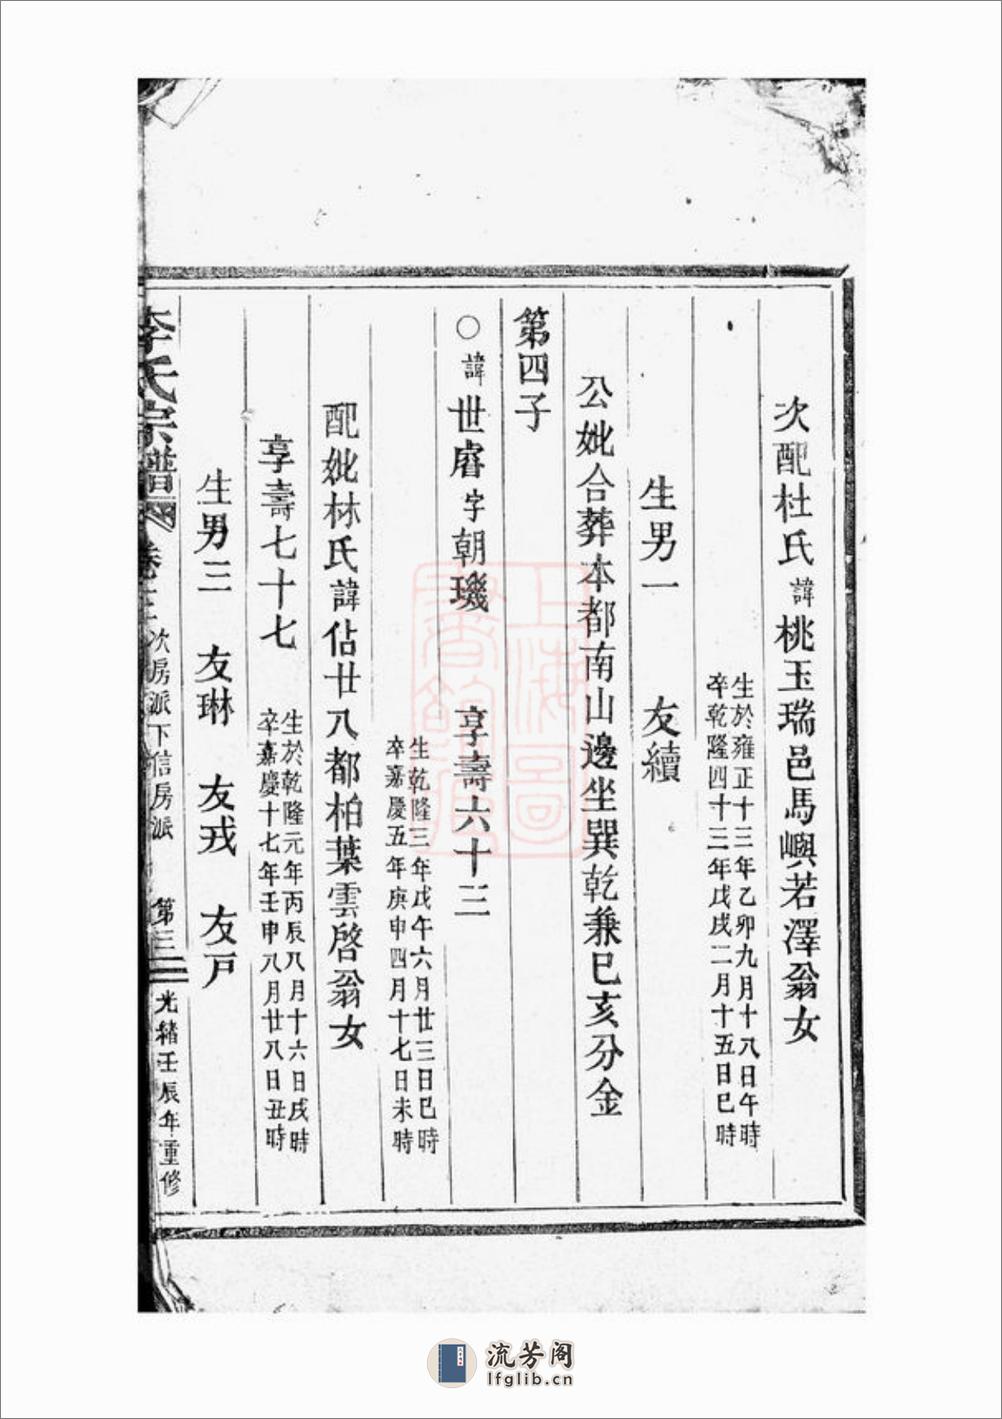 次配杜氏諱桃玉瑞邑馬嶼若澤翁女
生於雍正十三年乙卯九月十八日午時
卒乾隆四十三年戊戌二月十五日巳時
生男一 友續
公妣合葬本都南山邊坐巽乾兼巳亥分金
第四子
○諱世睿字朝璣 享壽六十三
生乾隆三年戊午六月廿三日巳時
卒嘉慶五年庚申四月十七日未時
配妣林氏諱佔廿八都柏葉雲啓翁女
享壽七十七
生於乾隆元年丙辰八月十六日戌時
卒嘉慶十七年壬申八月廿八日丑時
生男三 友琳 友戎 友戸
李氏宗譜 卷三 次房派下信房派 第三 光緒壬辰年重修
上海圖書館藏
流芳阁
lfglib.cn